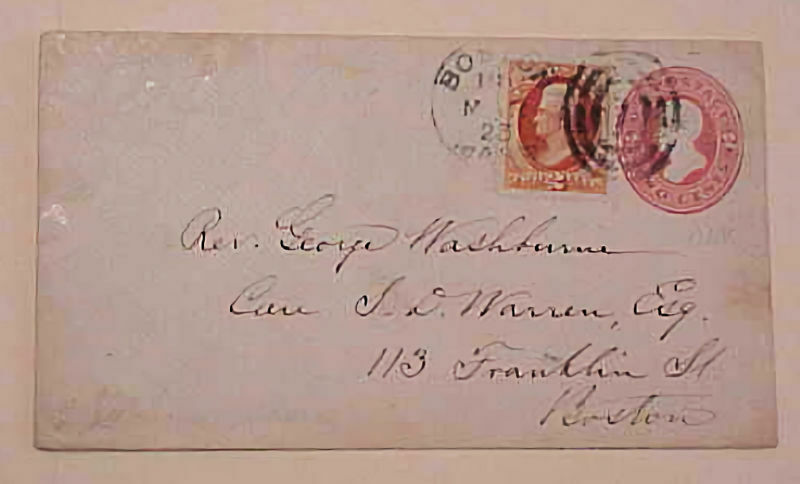 BOSTON
M
2
Rev. George Washburne
Care S. D. Warren, Esq.
113 Franklin St
Boston